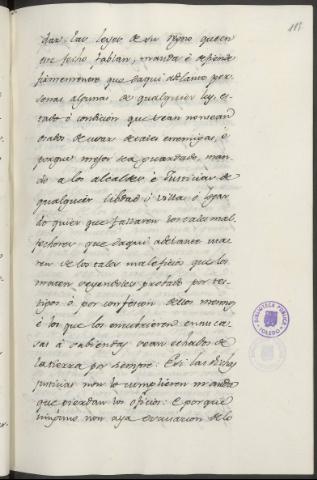 113
dar las leyes de su regno que en
este fecho fablan, manda è defiende
firmemente que daqui adelante per-
sonas algunas de qualquier ley, es-
tado ó condicion que sean non sean
osados de usar de tales enemigas, è
porque mejor sea guardado man-
do a los alcaldes è Justicias de
qualquier Cibdad ò villa ò lugar
do quier que fallaren los tales mal-
fechores que daqui adelante usa-
ren de los tales maleficios que los
maten seyendoles probado por tes-
tigos ò por confesion dellos mesmos
è los que los encubrieren en sus ca-
sas á sabiendas sean echados de
la tierra por siempre. E si las dichas
justicias non lo cumplieren mando
que pierdan los oficios: E porque
ninguno non aya escusacion de lo
BIBLIOTECA PÚBLICA
TOLEDO